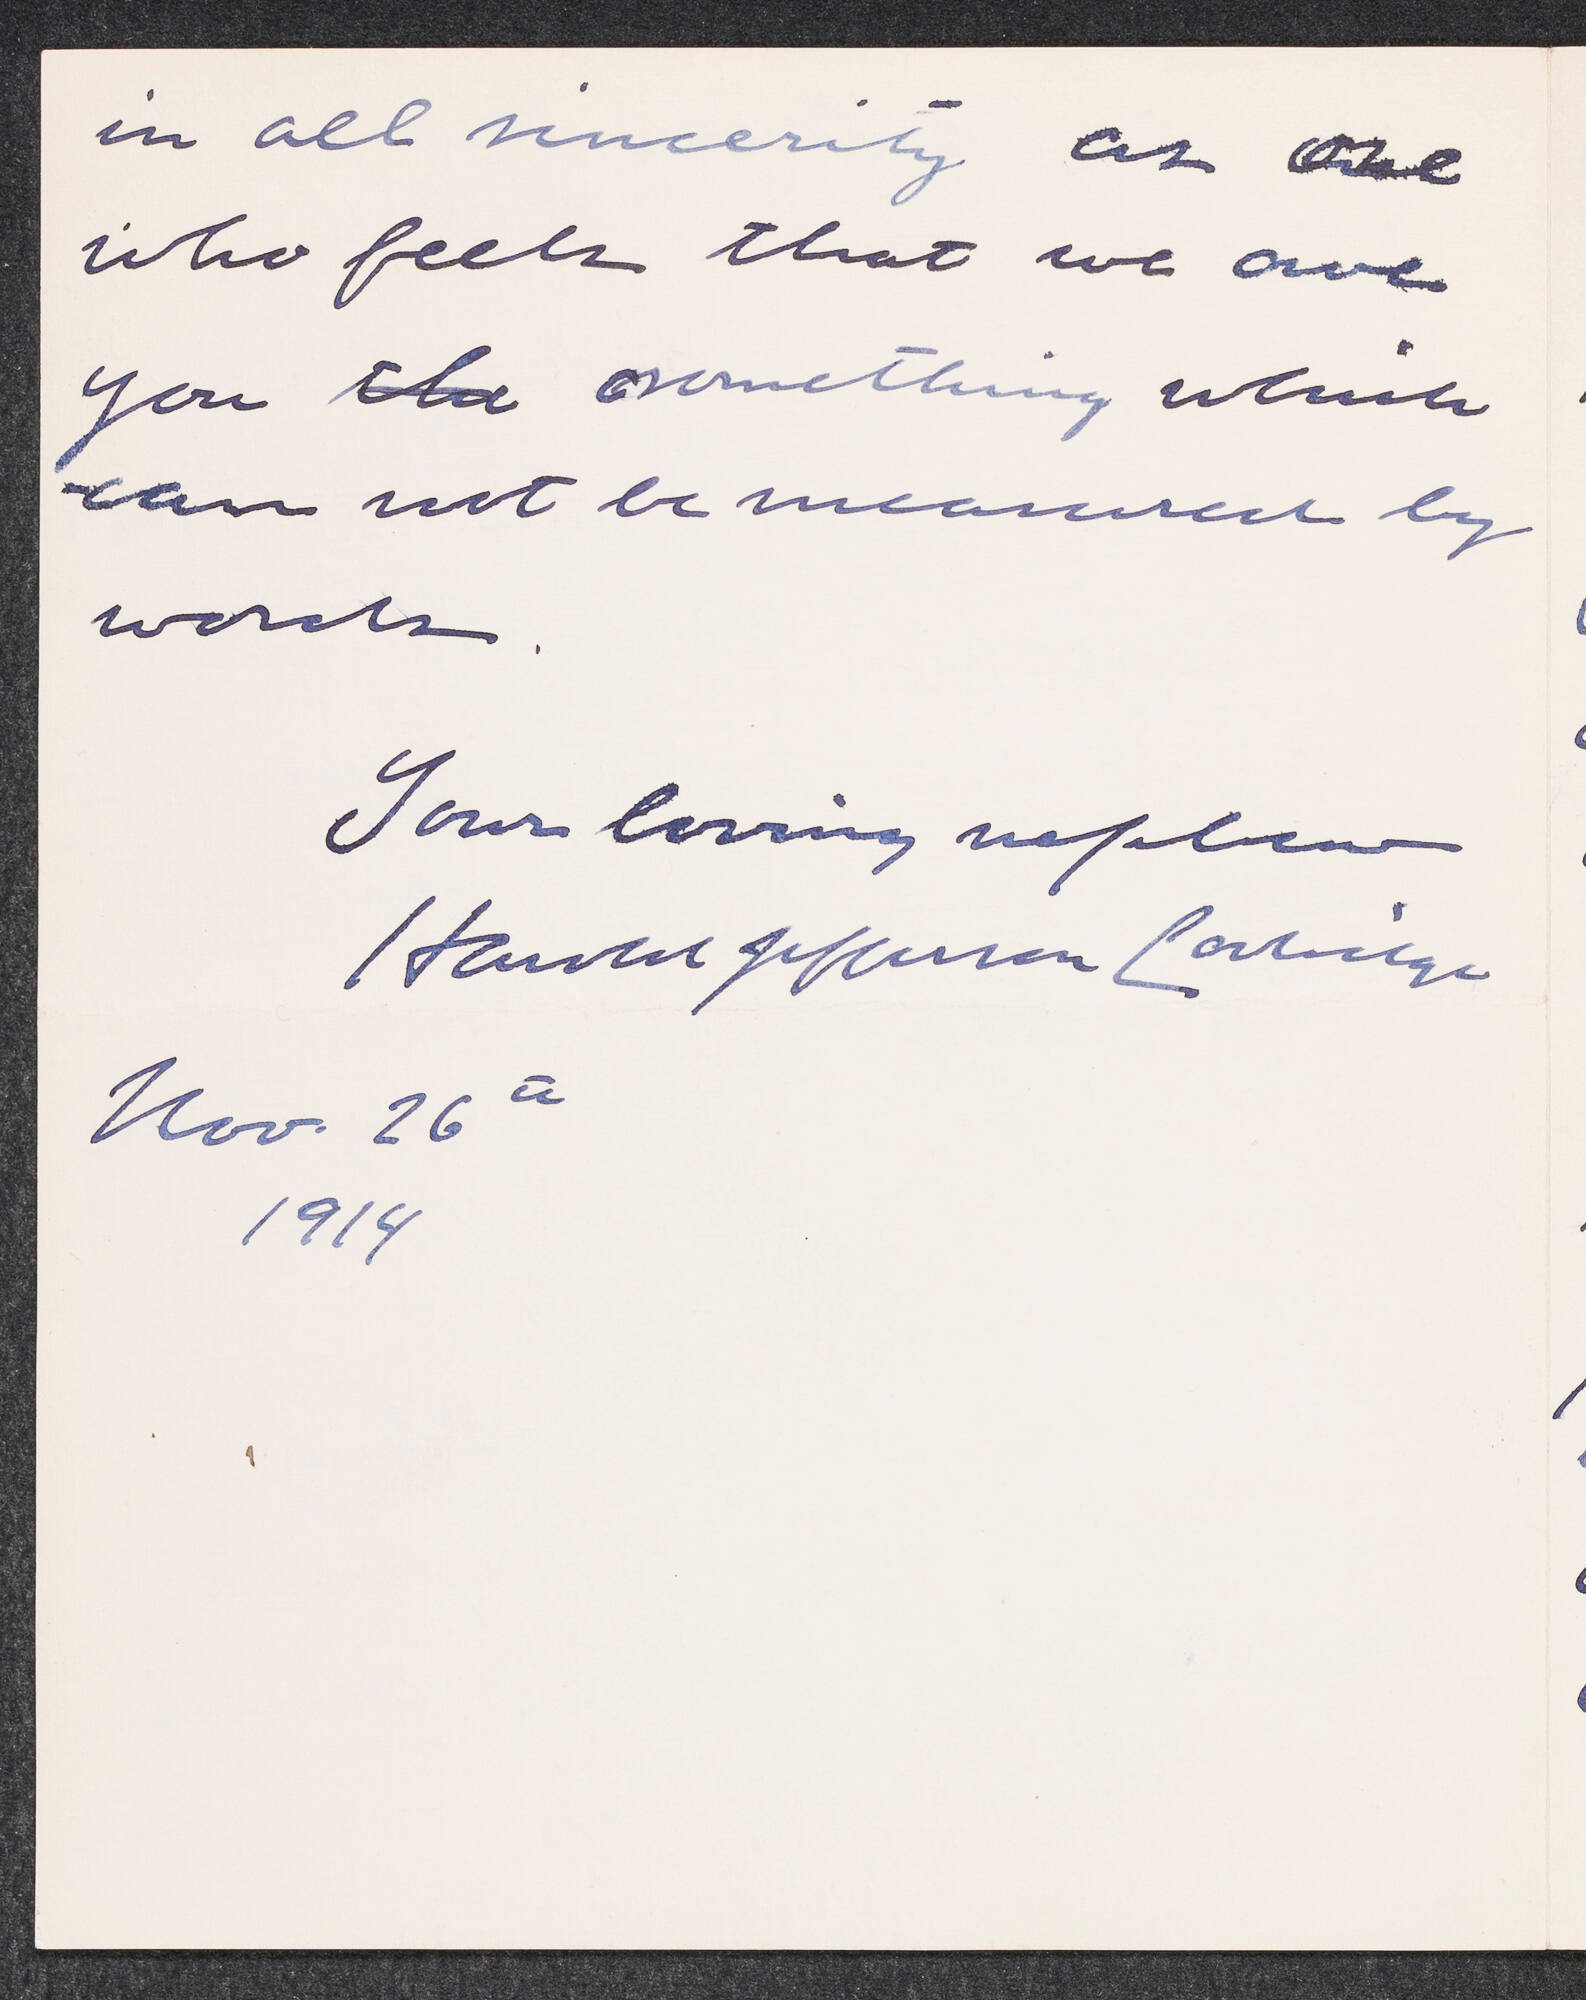 in all sincerity as one
who feels that we owe
you the something which
can not be measured by
words.
Your loving nephew
Harold Jefferson Coolidge
Nov. 26th
1914